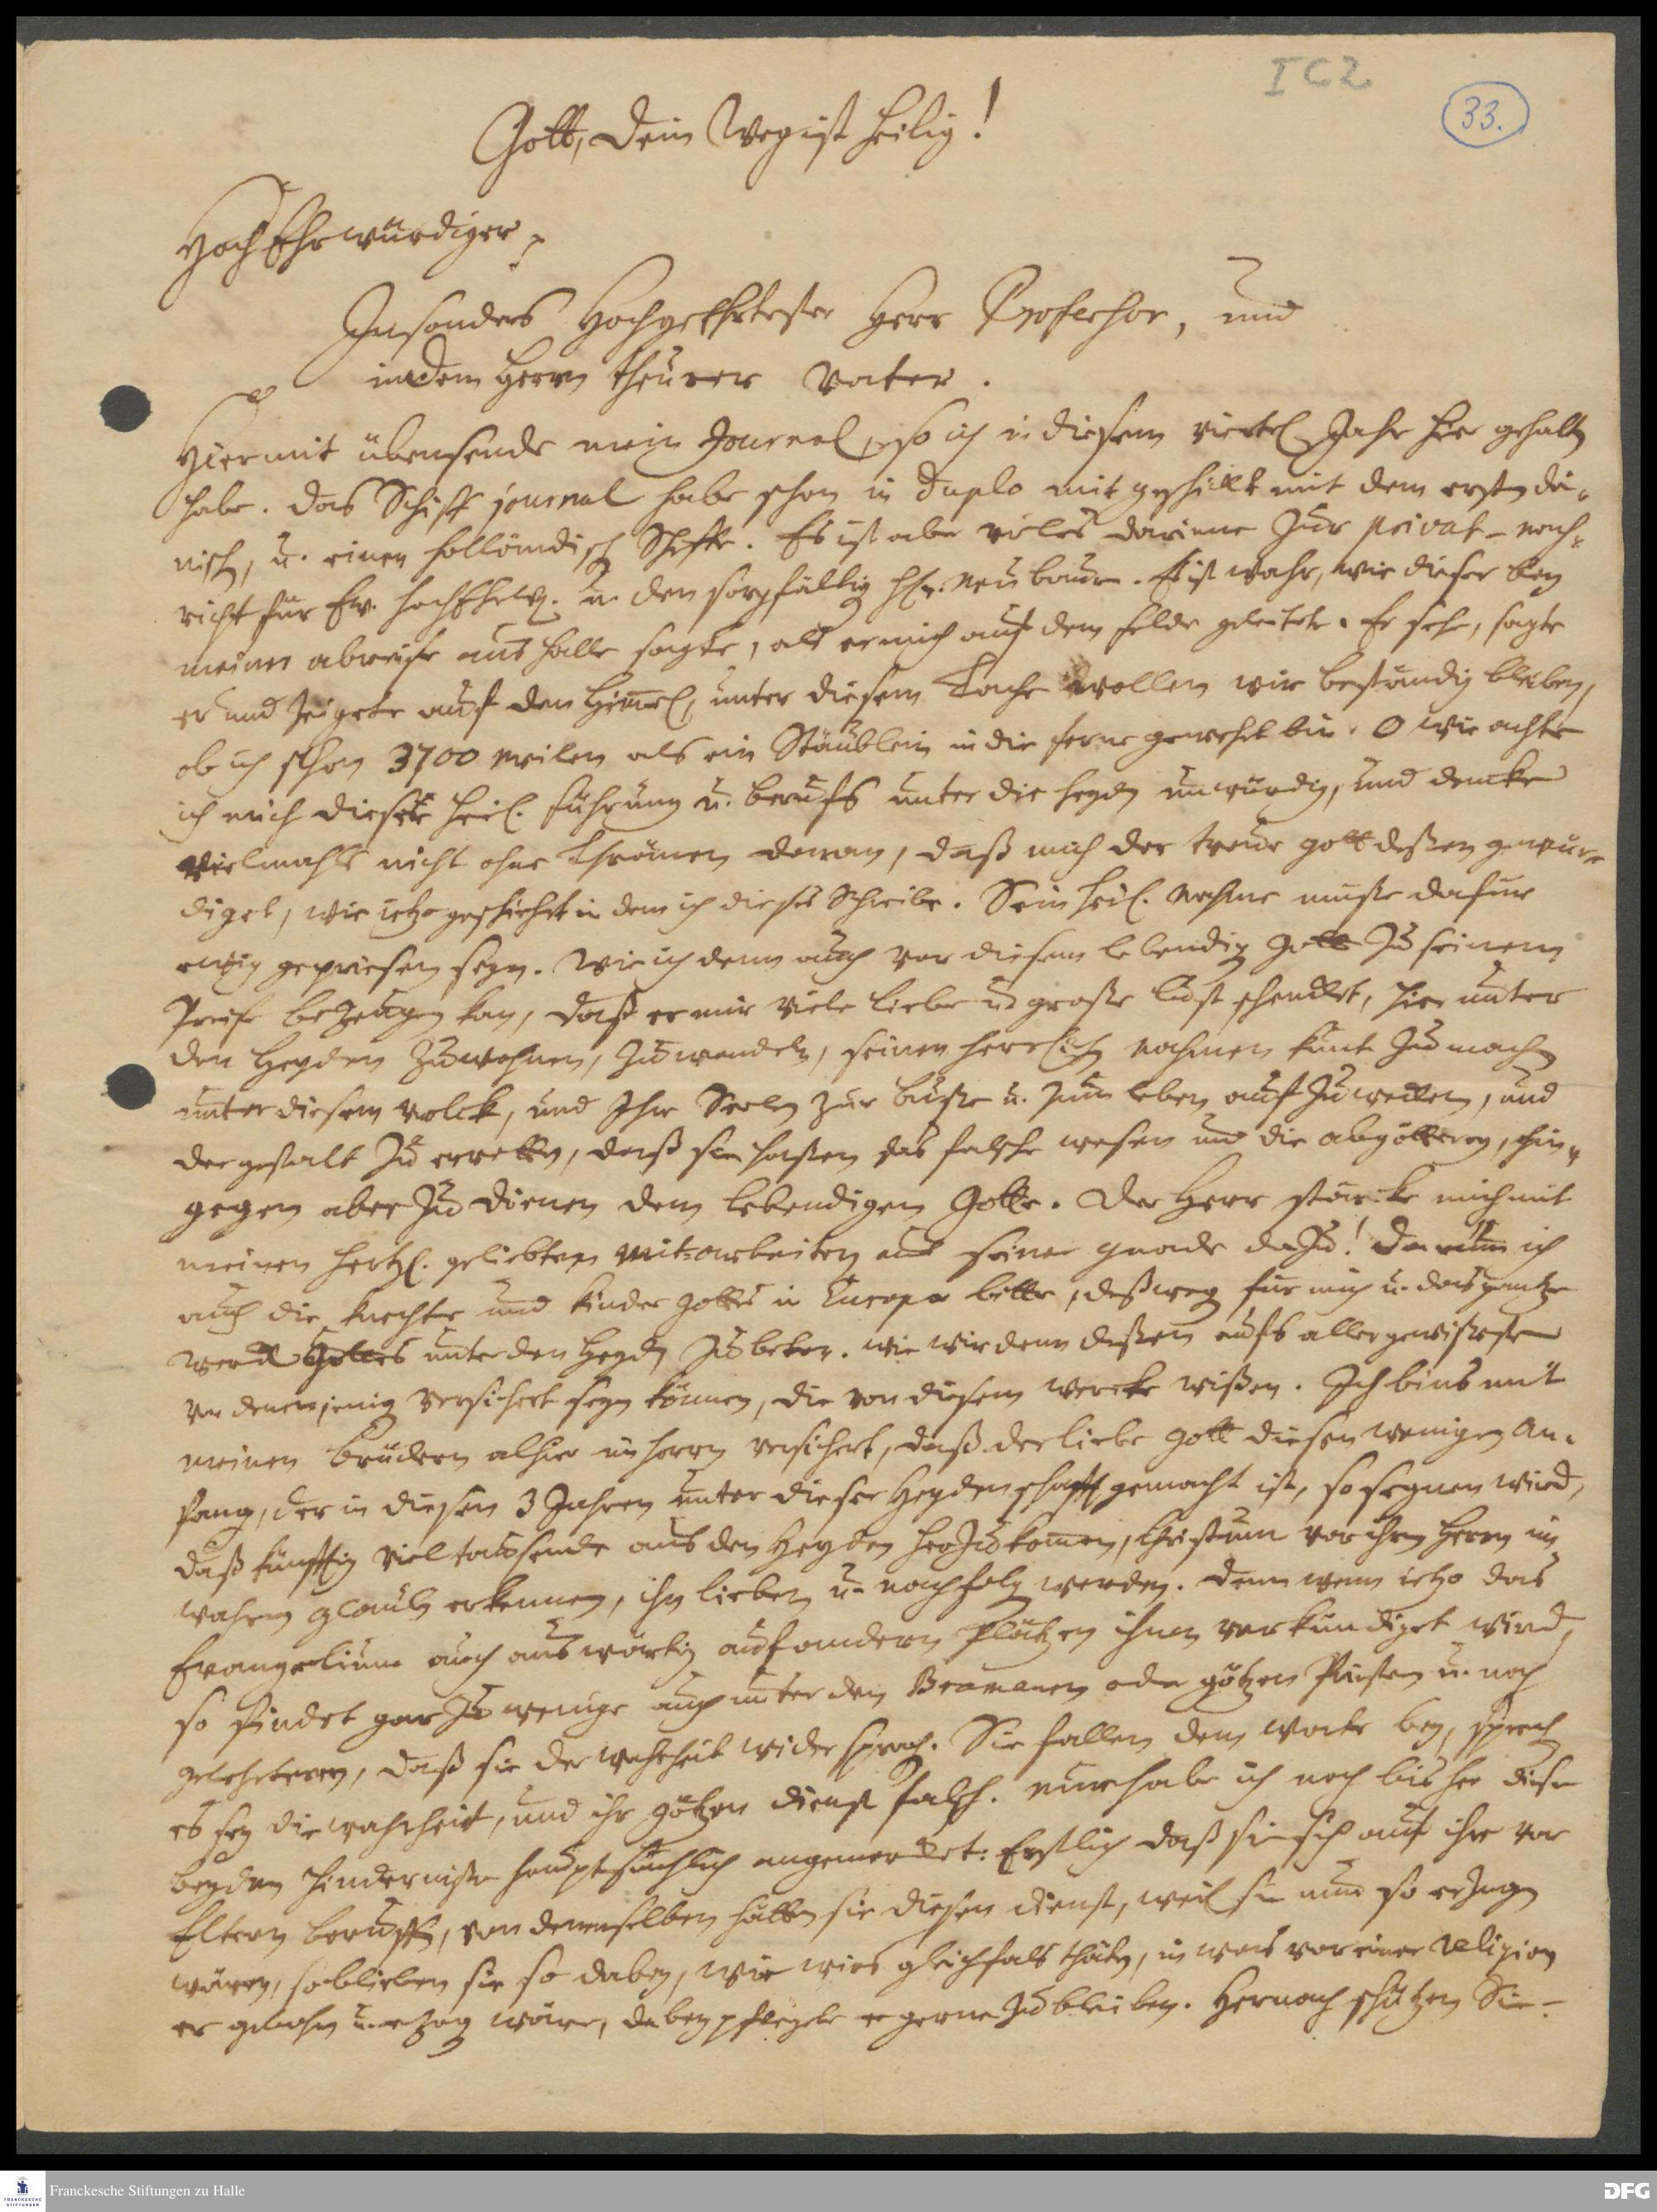 I C 2
33.
Gott, dein Weg ist heilig!
HochEhrwürdiger,
Insonders Hochgeehrtester Herr Professor, und
in dem Herrn theurer Vater.
Hiermit übersende mein Journal, so ich in diesem viertel Jahr hier gehalten
habe. Das Schiff journal habe schon in duplo mit geschickt mit dem ersten dä-
nisch, u. einen holländisch Schiffe. Es ist aber vieles darinne zur privat-nach-
richt für Ew. HochEhrw. u. den sorgfältig H. Neubauer. Es ist wahr, wie dieser bey
meiner abreise aus Halle sagte, als er mich auf dem felde gleitete. Er sehe, sagte
er und zeigete auf den Himel, unter diesem Dache wollen wir beständig bleiben,
ob ich schon 3700 meilen als ein Stäublein in die ferne gewehet bin. O wie achte
ich mich dieser heil. führung u. berufs unter die heyden unwürdig, und dencke
vielmahls nicht ohne Thränen daran, daß mich der treue gott deßen gewür-
diget, wie ietzo geschiehet in dem ich dieses Schreibe. Sein heil. Nahme müße dafür
ewig gepriesen seyn. Wie ich denn auch vor diesem lebendig Gott zu seinem
Preise bezeugen kan, daß er mir viele liebe u. große lust schencket, hier unter
den Heyden zu wohnen, zu wandeln, seinen herrlich nahmen kunt zu machen
unter diesem volck, und Ihre Seelen zur buße u. zum leben auf zu wecken, und
dergestalt zu erretten, daß sie haßen das falsche wesen und die abgötterey, hin-
gegen aber zu dienen dem lebendigen Gotte. Der Herr stärcke mich mit
meinen hertzl. geliebten mit-arbeitern aus seiner gnade dazu! Darum ich
auch die knechte und kinder gottes in Europa bitte, deßweg für mich u. das gantze
werck Gottes unter den Heyden zu beten. wie wir denn deßen aufs allergewißeste
von denenjenig versichert seyn können, die von diesem wercke wißen. Ich bins mit
meinen brüdern alhier im herrn versichert, daß der liebe Gott diesen wenigen An-
fang, der in diesen 3 Jahren unter dieser Heydenschafft gemacht ist, so segnen wird,
daß künfftig viel tausende aus den Heyden herzu komen, Christum vor ihren Herrn im
wahren glauben erkennen, ihn lieben u. nachfolg werden. Denn wenn ietzo das
Evangelium auch auswärtig auf andern Plätzen ihnen verkündiget wird,
so findet gar zu wenige auch unter den Bramanen oder götzen Priestern u. noch
gelehrteren, daß sie der wahrheit wider sprech. Sie fallen dem worte bey, sprech
es sey die wahrheit, und ihr götzen dienst falsch. Nur habe ich noch bis her diese
beyden hinderniße hauptsächlich angemercket: Erstlich daß sie sich auf ihre vor
Eltern beruffen, von denenselben hätten sie diesen dienst, weil sie nun so erzogen
wären, so blieben sie so dabey, wie wirs gleichfals thäten, in was vor einer Religion
er gebohrn u. erzog wäre, dabey pflegete er gerne zu bleiben. Hernach schützen Sie
Franckesche Stiftungen zu Halle
FRANCKESCHE STIFTUNGEN
DFG